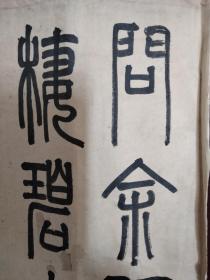 問余
棲碧